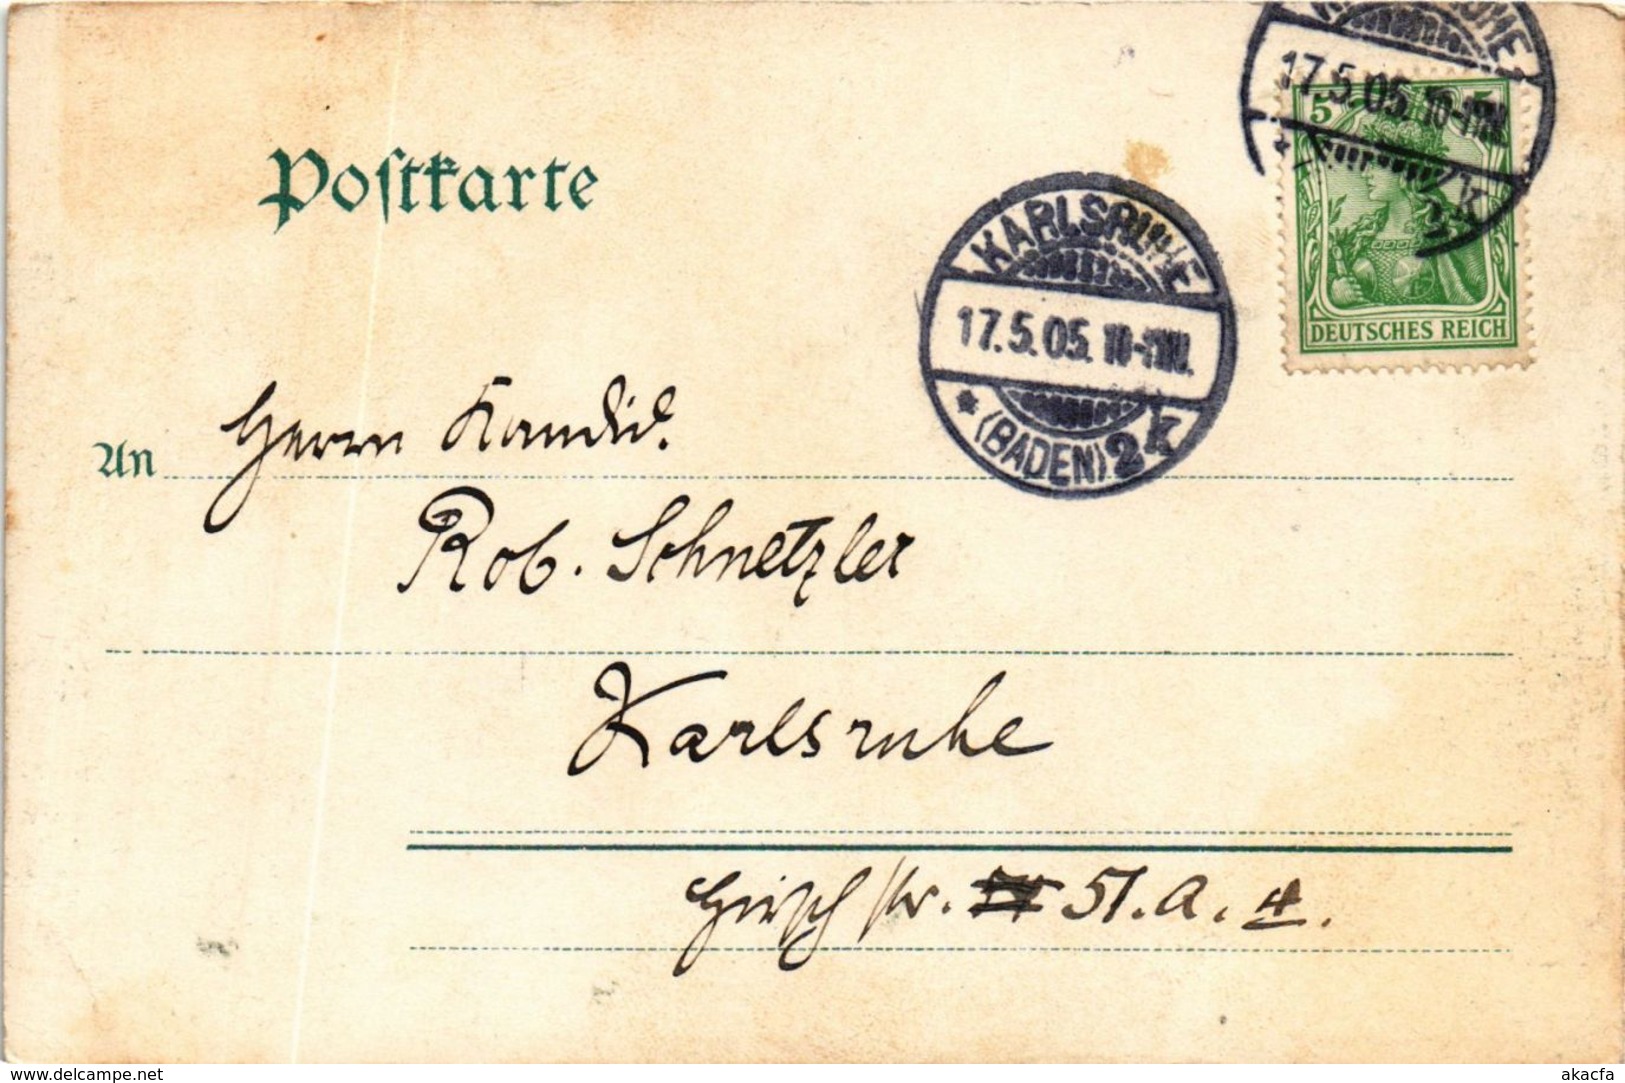 KARLSRUHE
17.5.05. 10-11N.
* (BADEN) 2k
17.5.05. 10-11N.
* 2k
5 5
DEUTSCHES REICH
Postkarte
An Herrn Kandid.
Rob. Schnetzler
Karlsruhe
Hirschstr. 51.a. 4.
www.delcampe.net
akacfa